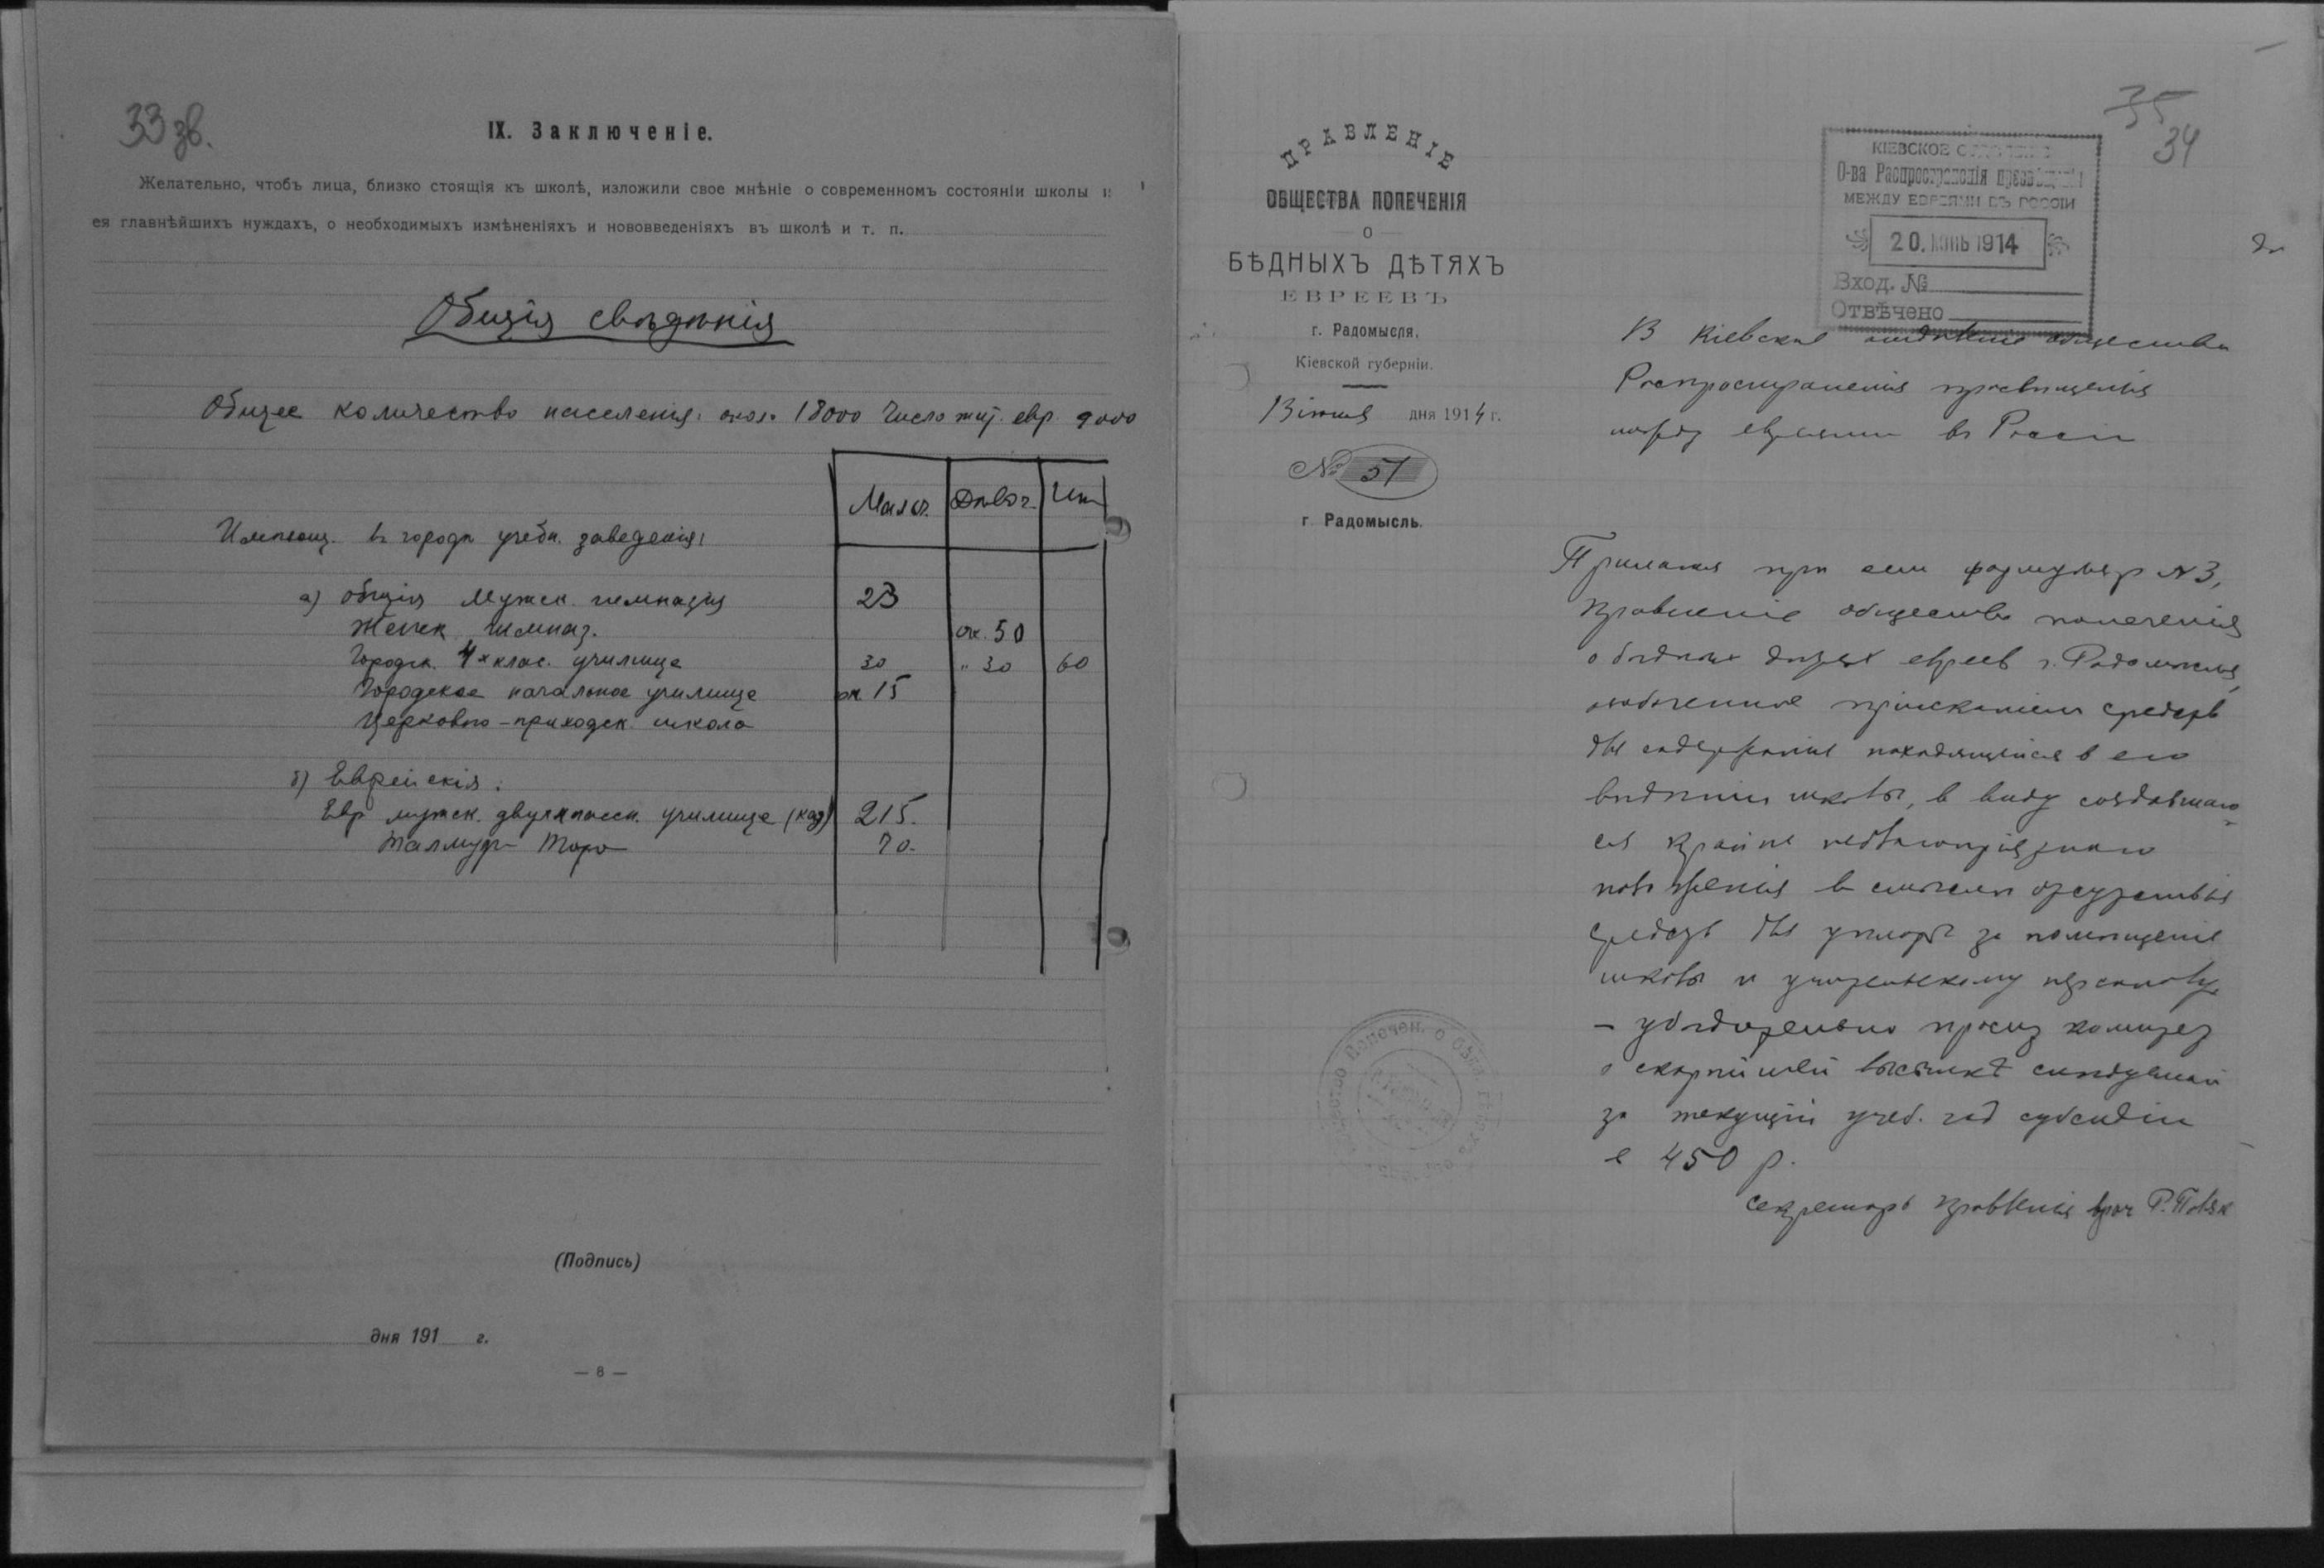 33 зв.
IX. Заключеніе.
Желательно, чтобъ лица, близко стоящія къ школѣ, изложили свое мнѣніе о современномъ состояніи школы и
ея главнѣйшихъ нуждахъ, о необходимыхъ измѣненіяхъ и нововведеніяхъ въ школѣ и т. п.
Общія свѣдѣнія
Общее количество населенія: окол. 18000 Число жит. евр. 9000
Мальч. Дѣвоч. Ит.
Имѣющ. в городѣ учебн. заведенія:
а) общія Мужск. гимназія 23
Женск. гимназ. ок. 50
Городск. 4х клас. училище 30 " 30 60
Городское начальное училище ок. 15
Церковно-приходск. школа
б) Еврейскія:
Евр. мужск. двухклассн. училище (каз) 215.
Талмуд Тора 70.
(Подпись)
дня 191 г.
— 8 —
35
34
ПРАВЛЕНІЕ
ОБЩЕСТВА ПОПЕЧЕНІЯ
О
БѢДНЫХЪ ДѢТЯХЪ
ЕВРЕЕВЪ
г. Радомысля,
Кіевской губерніи.
13 іюня дня 1914 г.
№ 51
г. Радомысль.
КІЕВСКОЕ ОТДѢЛЕНІЕ
О-ва Распространенія просвѣщенія
МЕЖДУ ЕВРЕЯМИ ВЪ РОССІИ
20. ІЮНЬ 1914
Вход. №
Отвѣчено
В Кіевское отдѣленіе общества
Распространенія просвѣщенія
между евреями в Россіи
Прилагая при сем формуляр № 3,
правленіе общества попеченія
о бѣдных дѣтях евреев г. Радомысля,
озабоченное пріисканіем средств
для содержанія находящейся в его
вѣдѣніи школы, в виду создавшаго-
ся крайне неблагопріятнаго
положенія в смыслѣ отсутствія
средств для уплаты за помѣщеніе
школы и учительскому персоналу,
– убѣдительно просит комитет
о скорѣйшей высылкѣ слѣдуемой
за текущій учеб. год субсидіи
в 450 р.
секретарь правленія врач Р. Поляк